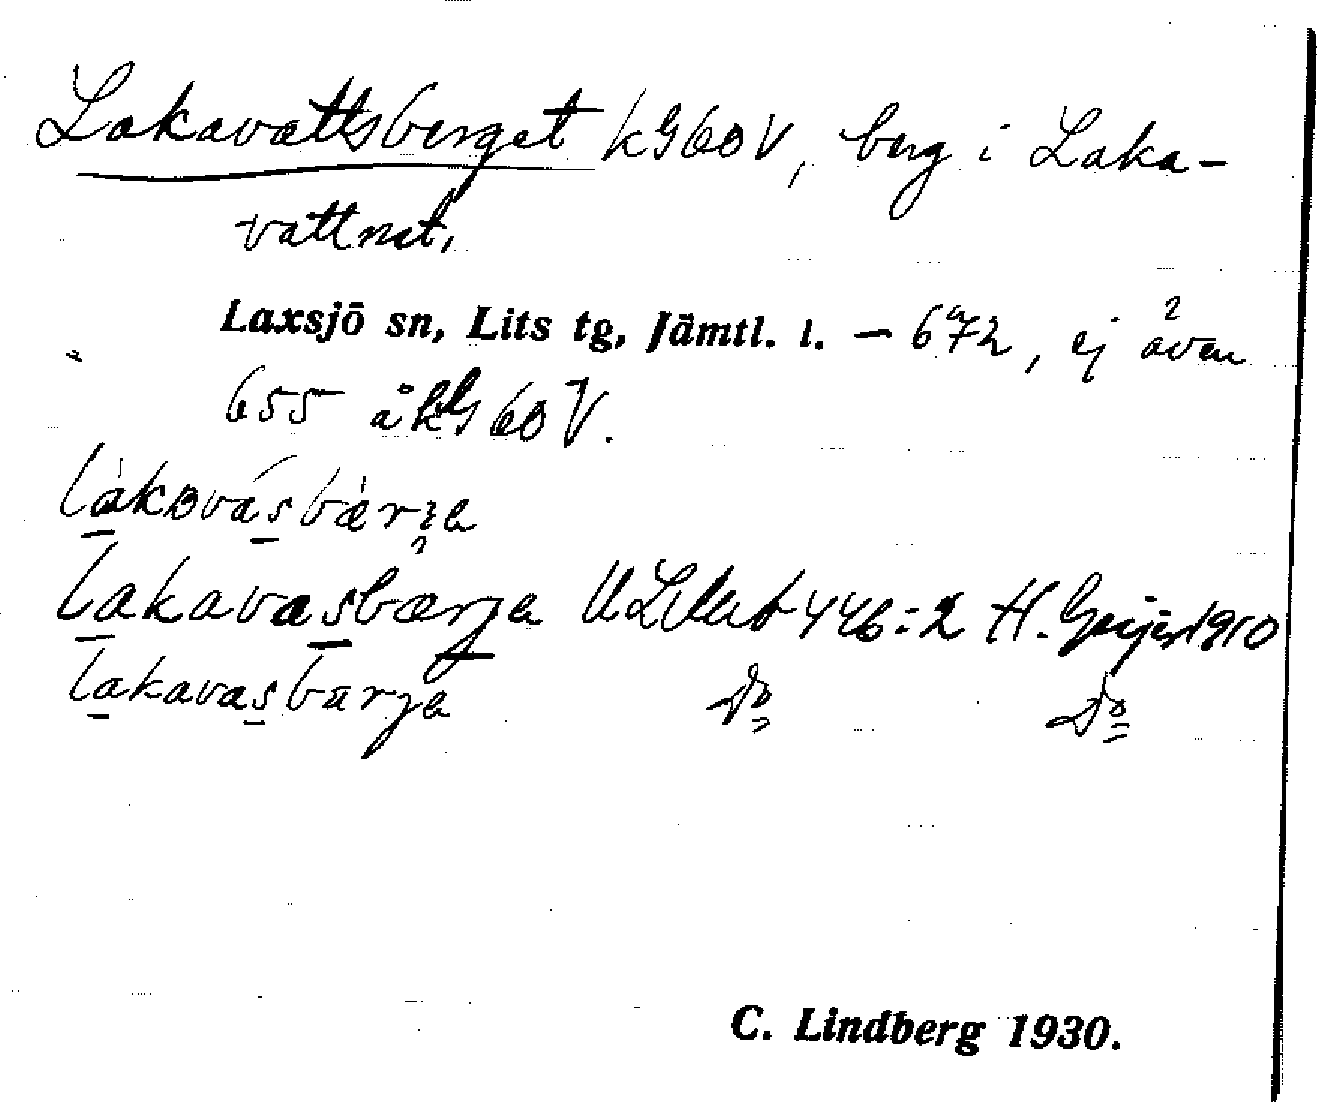 Lakavattsberget kG60V, berg i Laka-
vattnet,
Laxsjö sn, Lits tg, Jämtl. l. – 672, ej även
655 åkG60V.
lakavasbærja
lakavasbærja ULMA 446:2 H. Geijer 1910
lakavasbärja Do Do
C. Lindberg 1930.